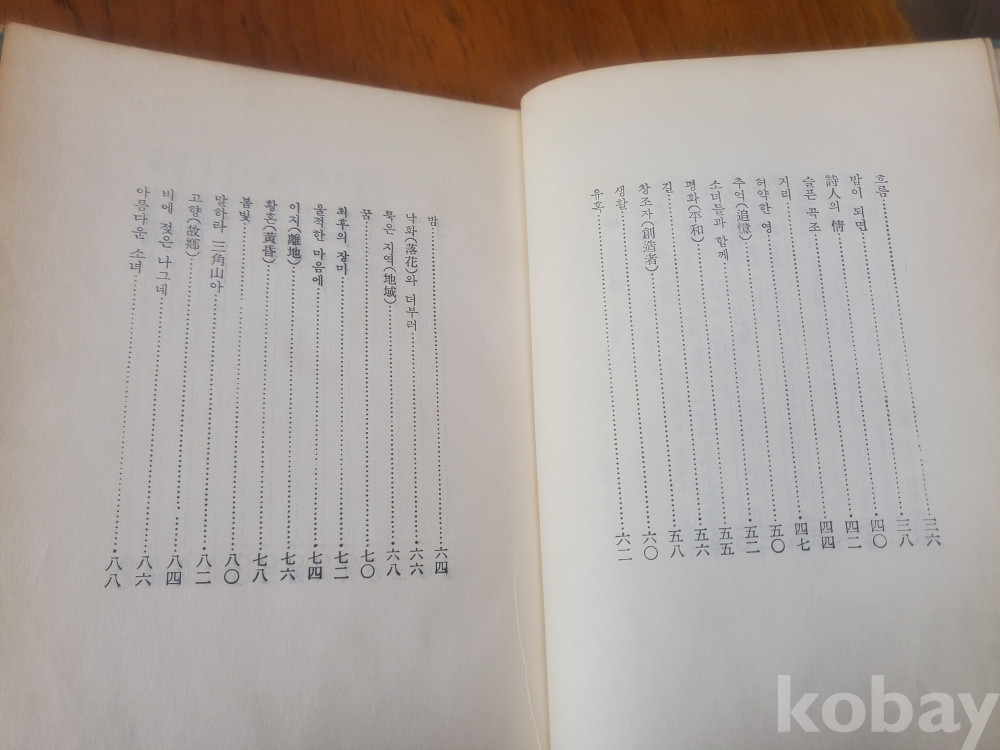 흐름 三六
밤이 되면 三八
詩人의 情 四〇
슬픈 곡조 四二
거리 四四
허약한 영 四七
추억(追憶) 五〇
소녀들과 함께 五二
평화(平和) 五五
길 五六
창조자(創造者) 五八
생활 六〇
유혹 六二
밤 六四
낙화(落花)와 더부러 六六
묵은 지역(地域) 六八
꿈 七〇
최후의 장미 七二
울적한 마음에 七四
이지(離地) 七六
황혼(黃昏) 七八
봄빛 八〇
말하라 三角山아 八二
고향(故鄕) 八四
비에 젖은 나그네 八六
아름다운 소녀 八八
kobay